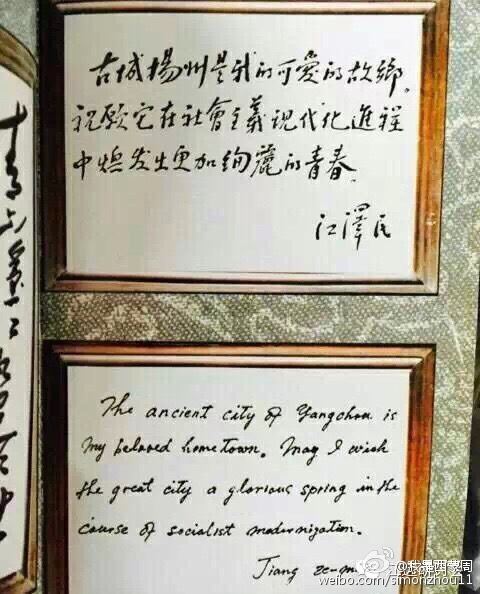 古城揚州是我的可爱的故鄉。
祝願它在社會主義現代化進程
中煥发出更加绚麗的青春。
江澤民
The ancient city of Yangchou is
my beloved hometown. May I wish
the great city a glorious spring in the
course of socialist modernization.
Jiang ze-m
weibo.com/simonzhou11